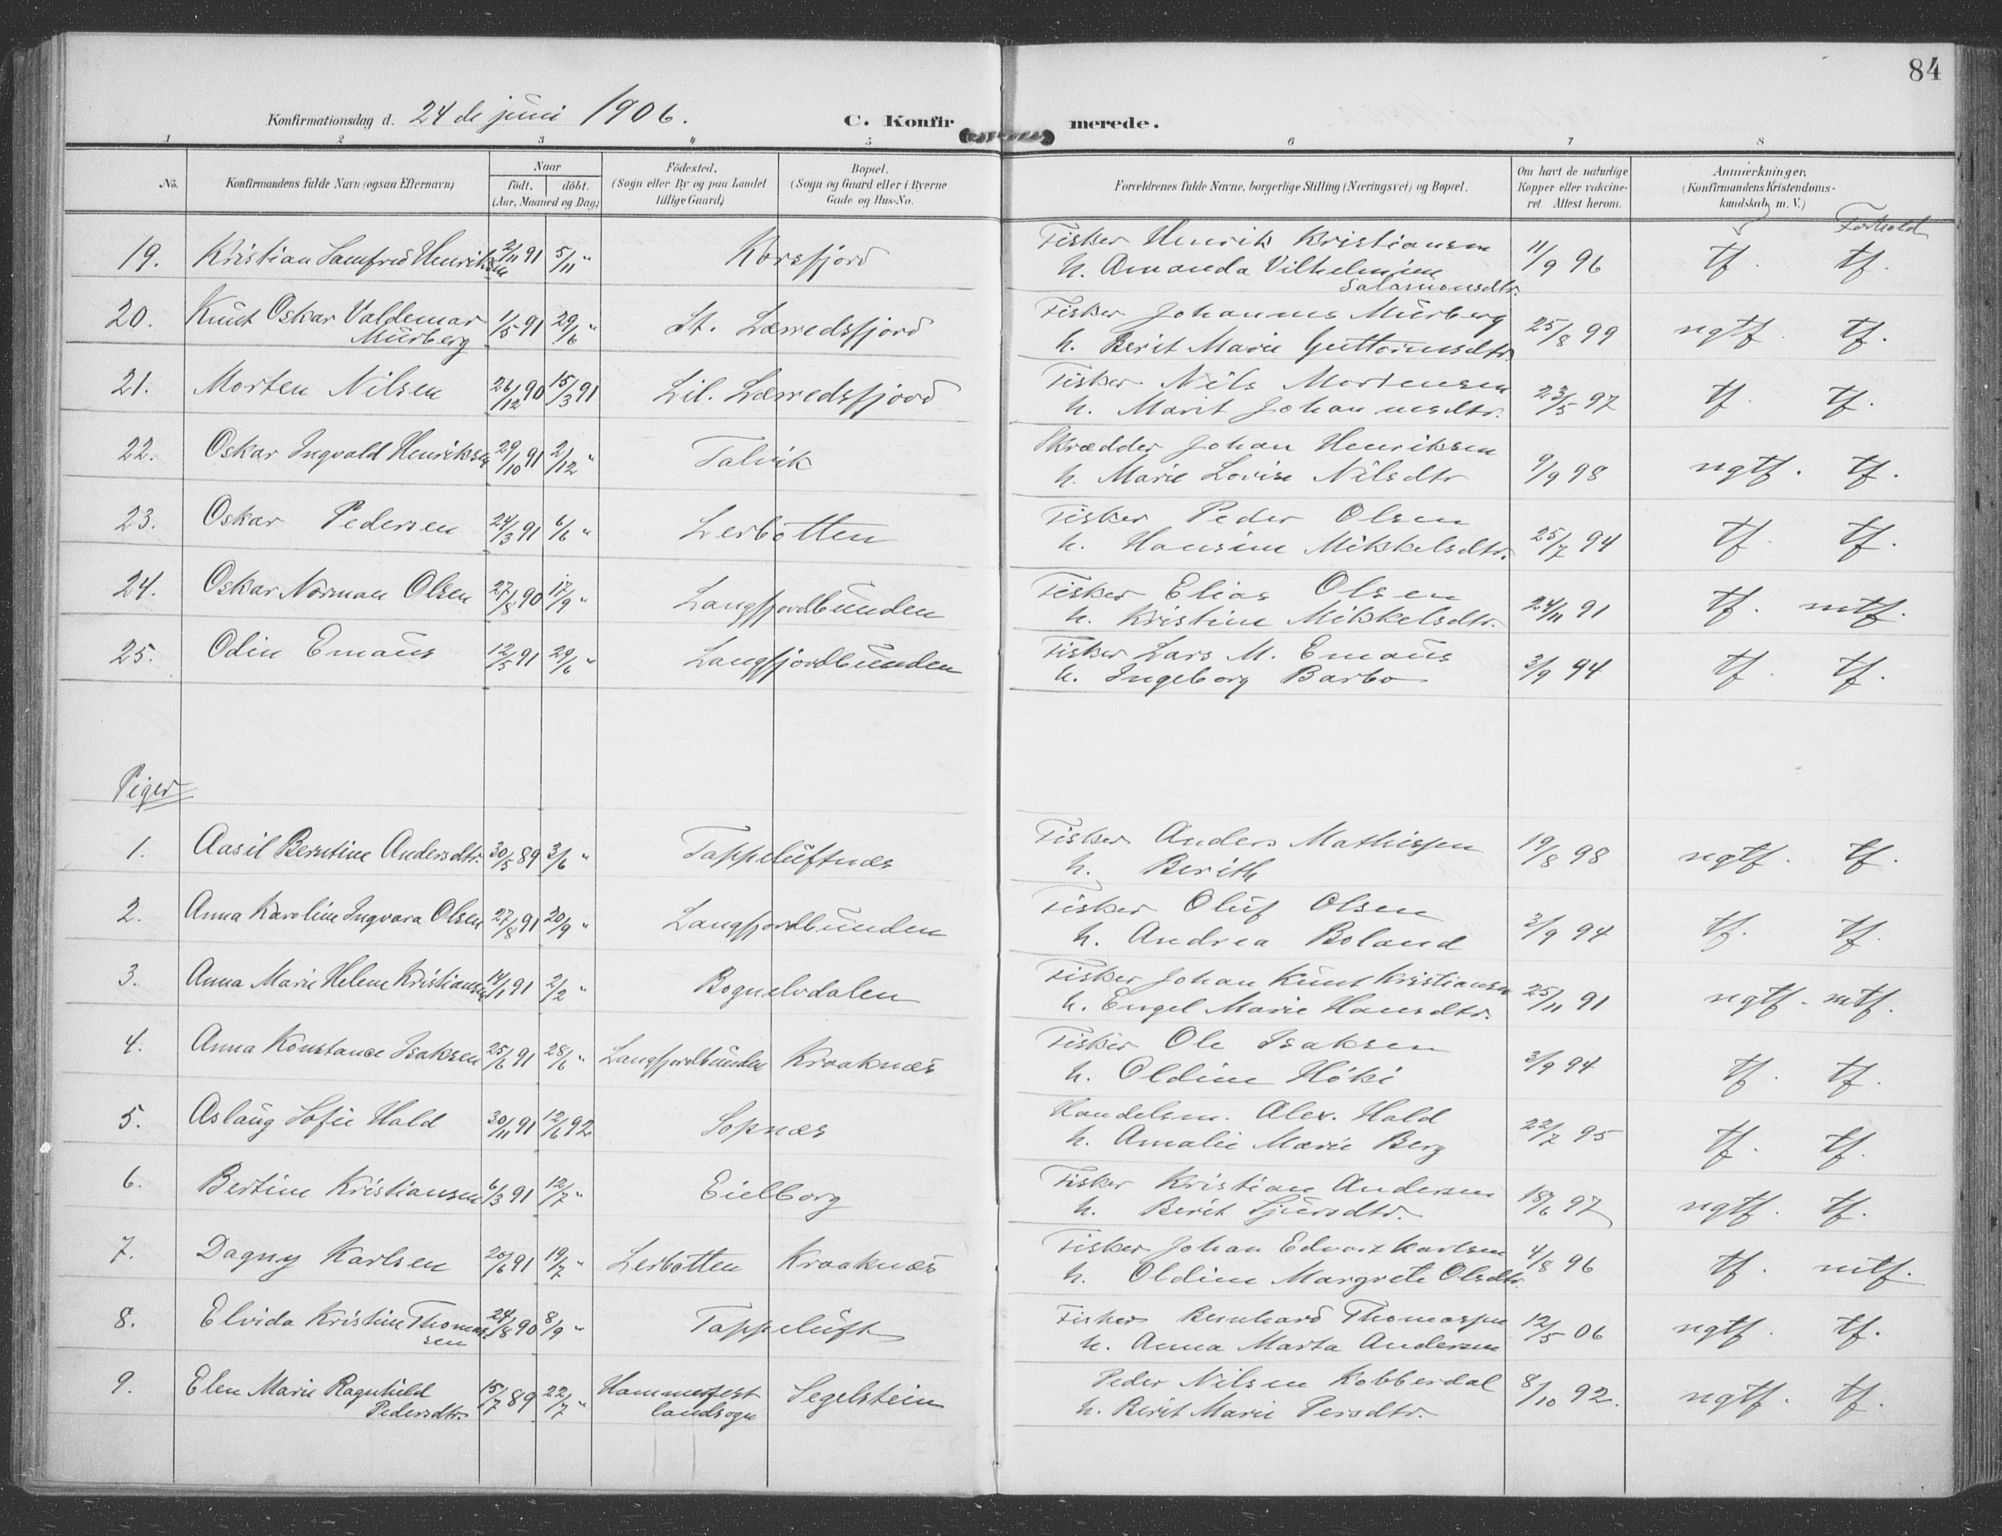 84
Konfirmationsdag d. 24 de juni 1906. C. Konfirmerede.
1 2 3 4 5 6 7 8
No. Konfirmandens fulde Navn (ogsaa Efternavn) Naar födt. döbt. (Aar, Maaned og Dag) Födested. (Sogn eller By og paa Landet tillige Gaard) Bopæl. (Sogn og Gaard eller i Byerne Gade og Hus-No. Forældrenes fulde Navne, borgerlige Stilling (Næringsvei) og Bopæl. Om havt de naturlige Kopper eller vakcineret Attest herom. Anmærkninger, (Konfirmandens Kristendomskundskab, m. V.) Forhold
19. Kristian Samfred Henriksen 2/11 91 5/11 " Korsfjord Fisker Henrik Kristiansen 11/9 96 tf. tf.
h. Amanda Vilhelmine Salamonsdtr.
20. Knut Oskar Valdemar Murberg 1/5 91 29/6 " St. Lerredsfjord Fisker Johannes Murberg 25/8 99 ngtf. tf.
h. Berit Marie Guttormsdtr
21. Morten Nilsen 26/12 90 15/3 91 Lil. Lerredsfjord Fisker Nils Mortensen 23/5 97 tf. tf.
h. Marit Johannesdtr.
22. Oskar Ingvald Henriksen 29/10 91 2/12 " Talvik Skrædder Johan Henriksen 9/9 98 ngtf. tf.
h. Marie Lovise Nilsdtr
23. Oskar Pedersen 24/3 91 6/6 " Lerbotten Fisker Peder Olsen 25/7 94 tf. tf.
h. Hansine Mikkelsdtr.
24. Oskar Norman Olsen 27/8 90 17/9 " Langfjordbunden Fisker Elias Olsen 24/11 91 tf. mtf.
h. Kristine Mikkelsdtr.
25. Odin Emaus 12/5 91 29/6 " Langfjordbunden Fisker Lars M. Emaus 3/9 94 tf. tf.
h. Ingeborg Barbo
Piger
1. Aasil Berntine Andersdtr. 30/5 89 3/6 " Tappeluftnæs Fisker Anders Mathissen 19/8 98 ngtf. tf.
h. Berith
2. Anna Karoline Ingvara Olsen 27/8 91 20/9 " Langfjordbunden Fisker Oluf Olsen 3/9 94 tf. tf.
h. Andrea Boland
3. Anna Marie Helene Kristiansen 14/1 91 2/2 " Bognelvdalen Fisker Johan Knut Kristiansen 25/11 91 ngtf. mtf.
h. Engel Marie Hansdtr.
4. Anna Konstance Isaksen 25/6 91 28/6 " Langfjordbunden Kraaknæs Fisker Ole Isaksen 3/9 94 tf. tf.
h. Oldine Höki
5. Aslaug Sofie Hald 30/11 91 12/6 92 Sopnæs Handelsm. Alex. Hald 22/7 95 tf. tf.
h. Amalie Marie Berg
6. Bertine Kristiansen 6/3 91 12/7 " Eielborg Fisker Kristian Andersen 18/6 97 ngtf. tf.
h. Berit Sjursdtr.
7. Dagny Karlsen 20/6 91 19/7 " Lerbotten Kraaknæs Fisker Johan Edvart Karlsen 4/8 96 tf. mtf.
h. Oldine Margrete Olsdtr.
8. Elvida Kristine Thomassen 24/8 90 8/9 " Tappeluft Fisker Bernhard Thomassen 12/5 06 ngtf. tf.
h. Anna Marta Andersen
9. Elen Marie Ragnhild Pedersdtr. 15/7 89 22/7 " Hammerfest landsogn Segelstein Peder Nilsen Kobberdal 8/10 92. ngtf. tf.
h. Berit Marie Persdtr.